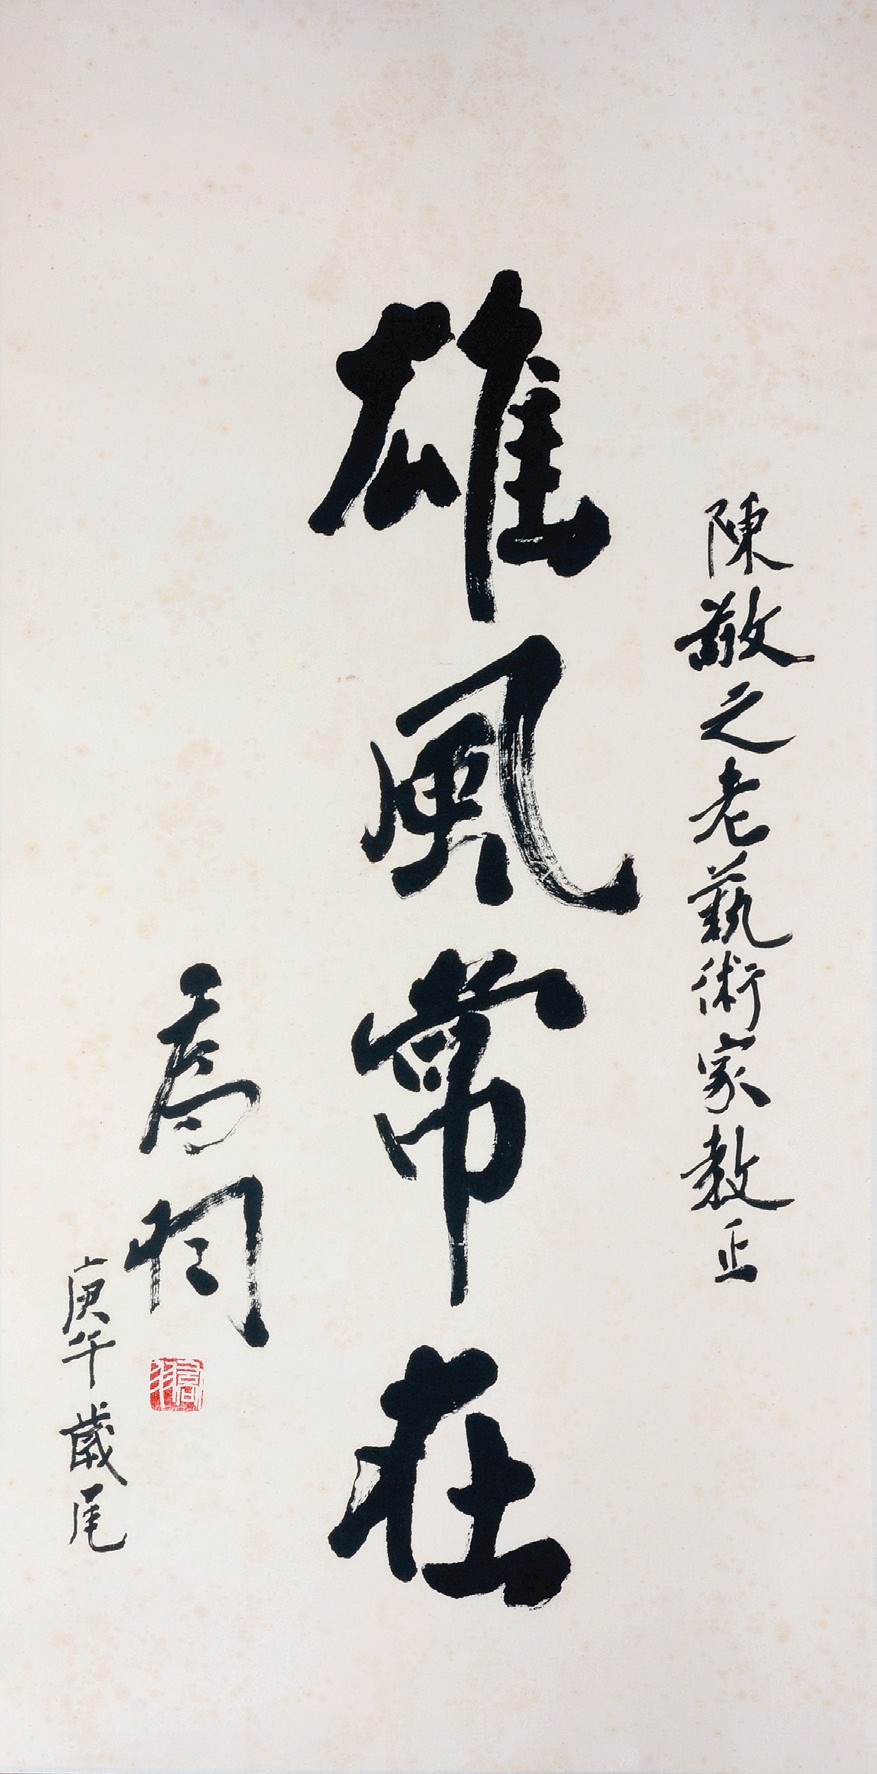 陳敬之老藝術家教正
雄風常在
喬羽
庚午歲尾
喬羽